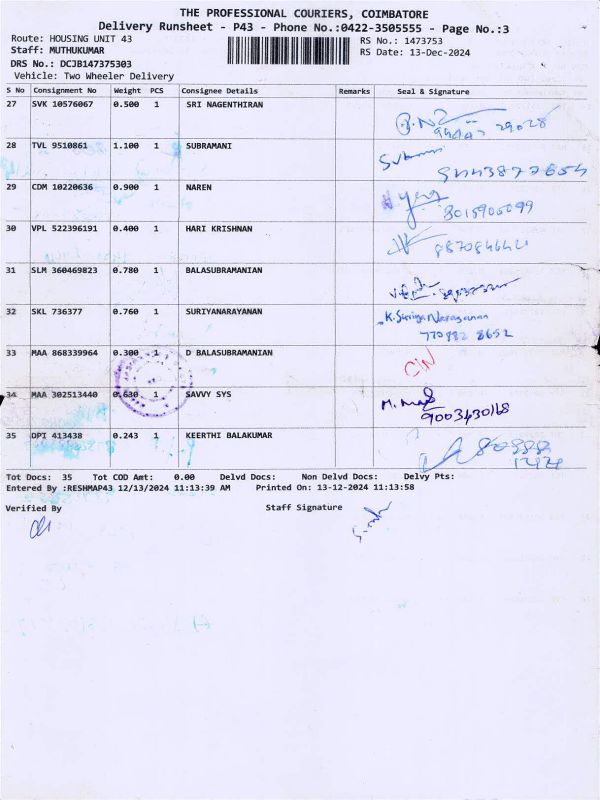 THE PROFESSIONAL COURIERS, COIMBATORE
Delivery Runsheet - P43 - Phone No.:0422-3505555 - Page No.:3
Route: HOUSING UNIT 43
RS No.: 1473753
Staff: MUTHUKUMAR
RS Date: 13-Dec-2024
DRS No.: DCJB147375303
Vehicle: Two Wheeler Delivery
S No Consignment No Weight PCS Consignee Details Remarks Seal & Signature
27 SVK 10576067 0.500 1 SRI NAGENTHIRAN
28 TVL 9510861 1.100 1 SUBRAMANI
29 CDM 10220636 0.900 1 NAREN
8015905099
30 VPL 522396191 0.400 1 HARI KRISHNAN
31 SLM 360469823 0.780 1 BALASUBRAMANIAN
32 SKL 736377 0.760 1 SURIYANARAYANAN K.Suriya Narayanan
770882 8652
33 MAA 868339964 0.300 1 D BALASUBRAMANIAN CIN
34 MAA 302513440 0.630 1 SAVVY SYS
9003430168
35 DPI 413438 0.243 1 KEERTHI BALAKUMAR
Tot Docs: 35 Tot COD Amt: 0.00 Delvd Docs: Non Delvd Docs: Delvy Pts:
Entered By :RESHMAP43 12/13/2024 11:13:39 AM Printed On: 13-12-2024 11:13:58
Verified By Staff Signature